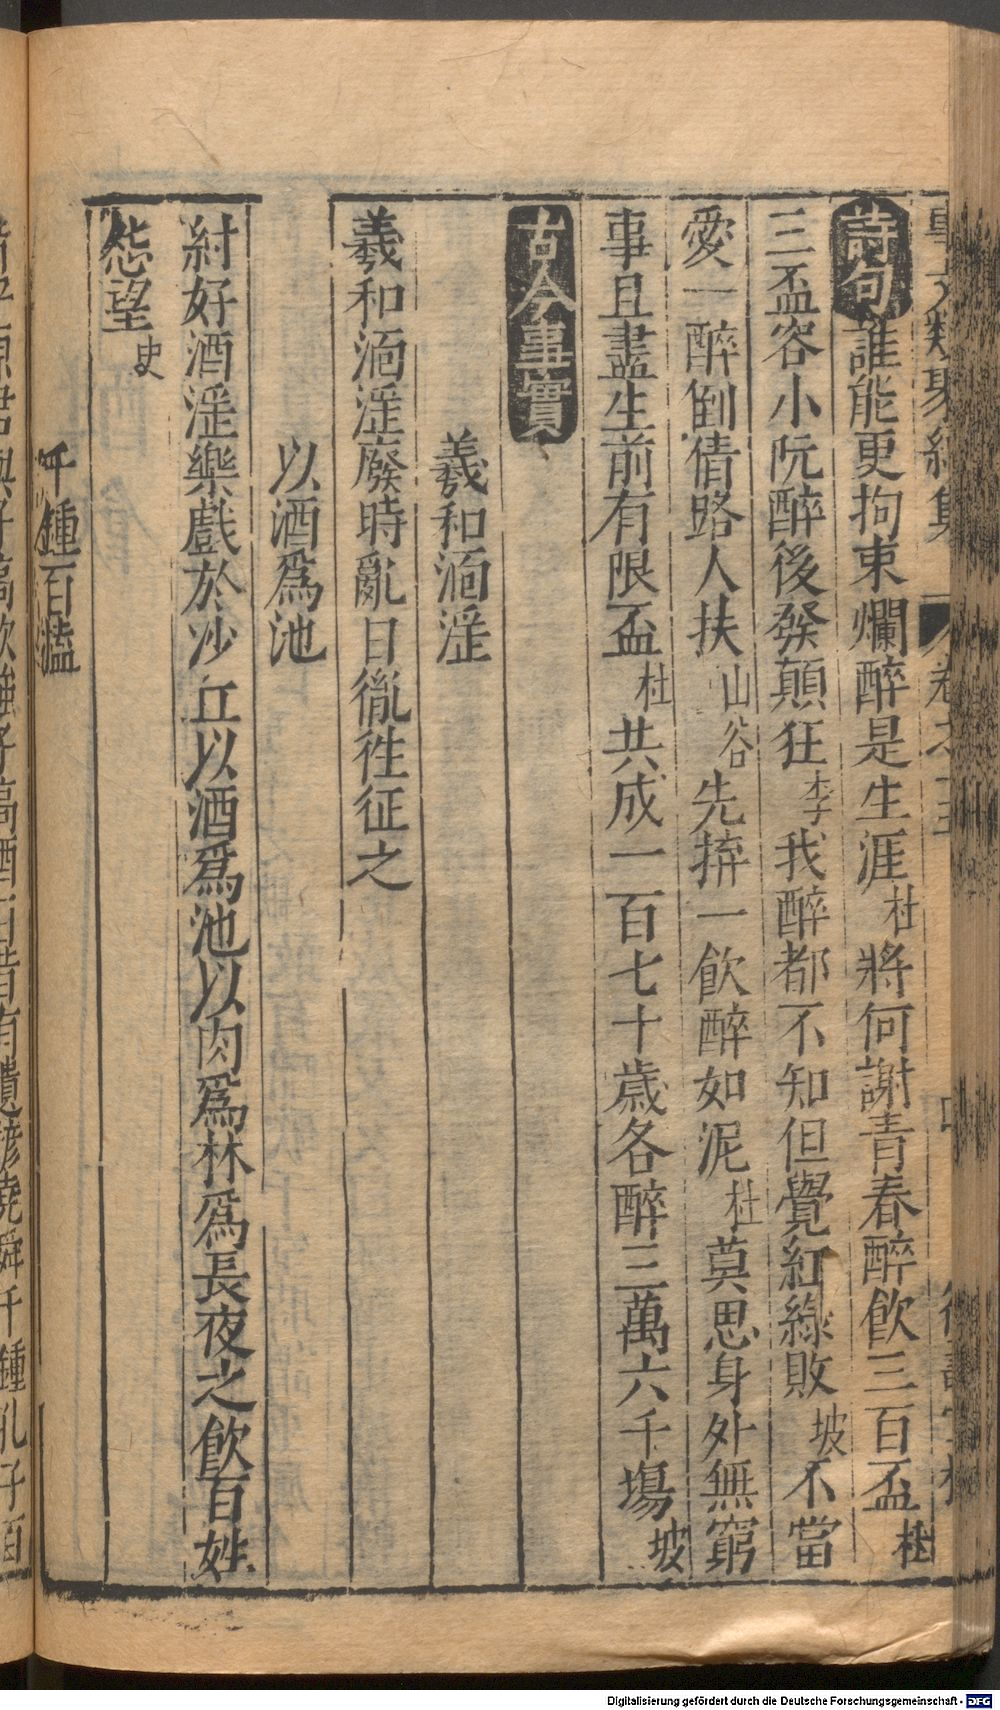 事文類聚續集 卷之十五
詩句誰能更拘束爛醉是生涯杜將何謝青春醉飲三百盃杜
三盃容小阮醉後發顛狂李我醉都不知但覺紅綠敗坡不當
愛一醉倒倩路人扶山谷先拚一飲醉如泥杜莫思身外無窮
事且盡生前有限盃杜共成一百七十歲各醉三萬六千場坡
古今事實
羲和湎淫
羲和湎淫廢時亂日胤徃征之
以酒爲池
紂好酒淫樂戲於沙丘以酒爲池以肉爲林爲長夜之飲百姓
怨望史
千鍾百榼
君與子高飲強子高酒曰昔有遺諺堯舜千鍾孔子百
Digitalisierung gefördert durch die Deutsche Forschungsgemeinschaft - DFG